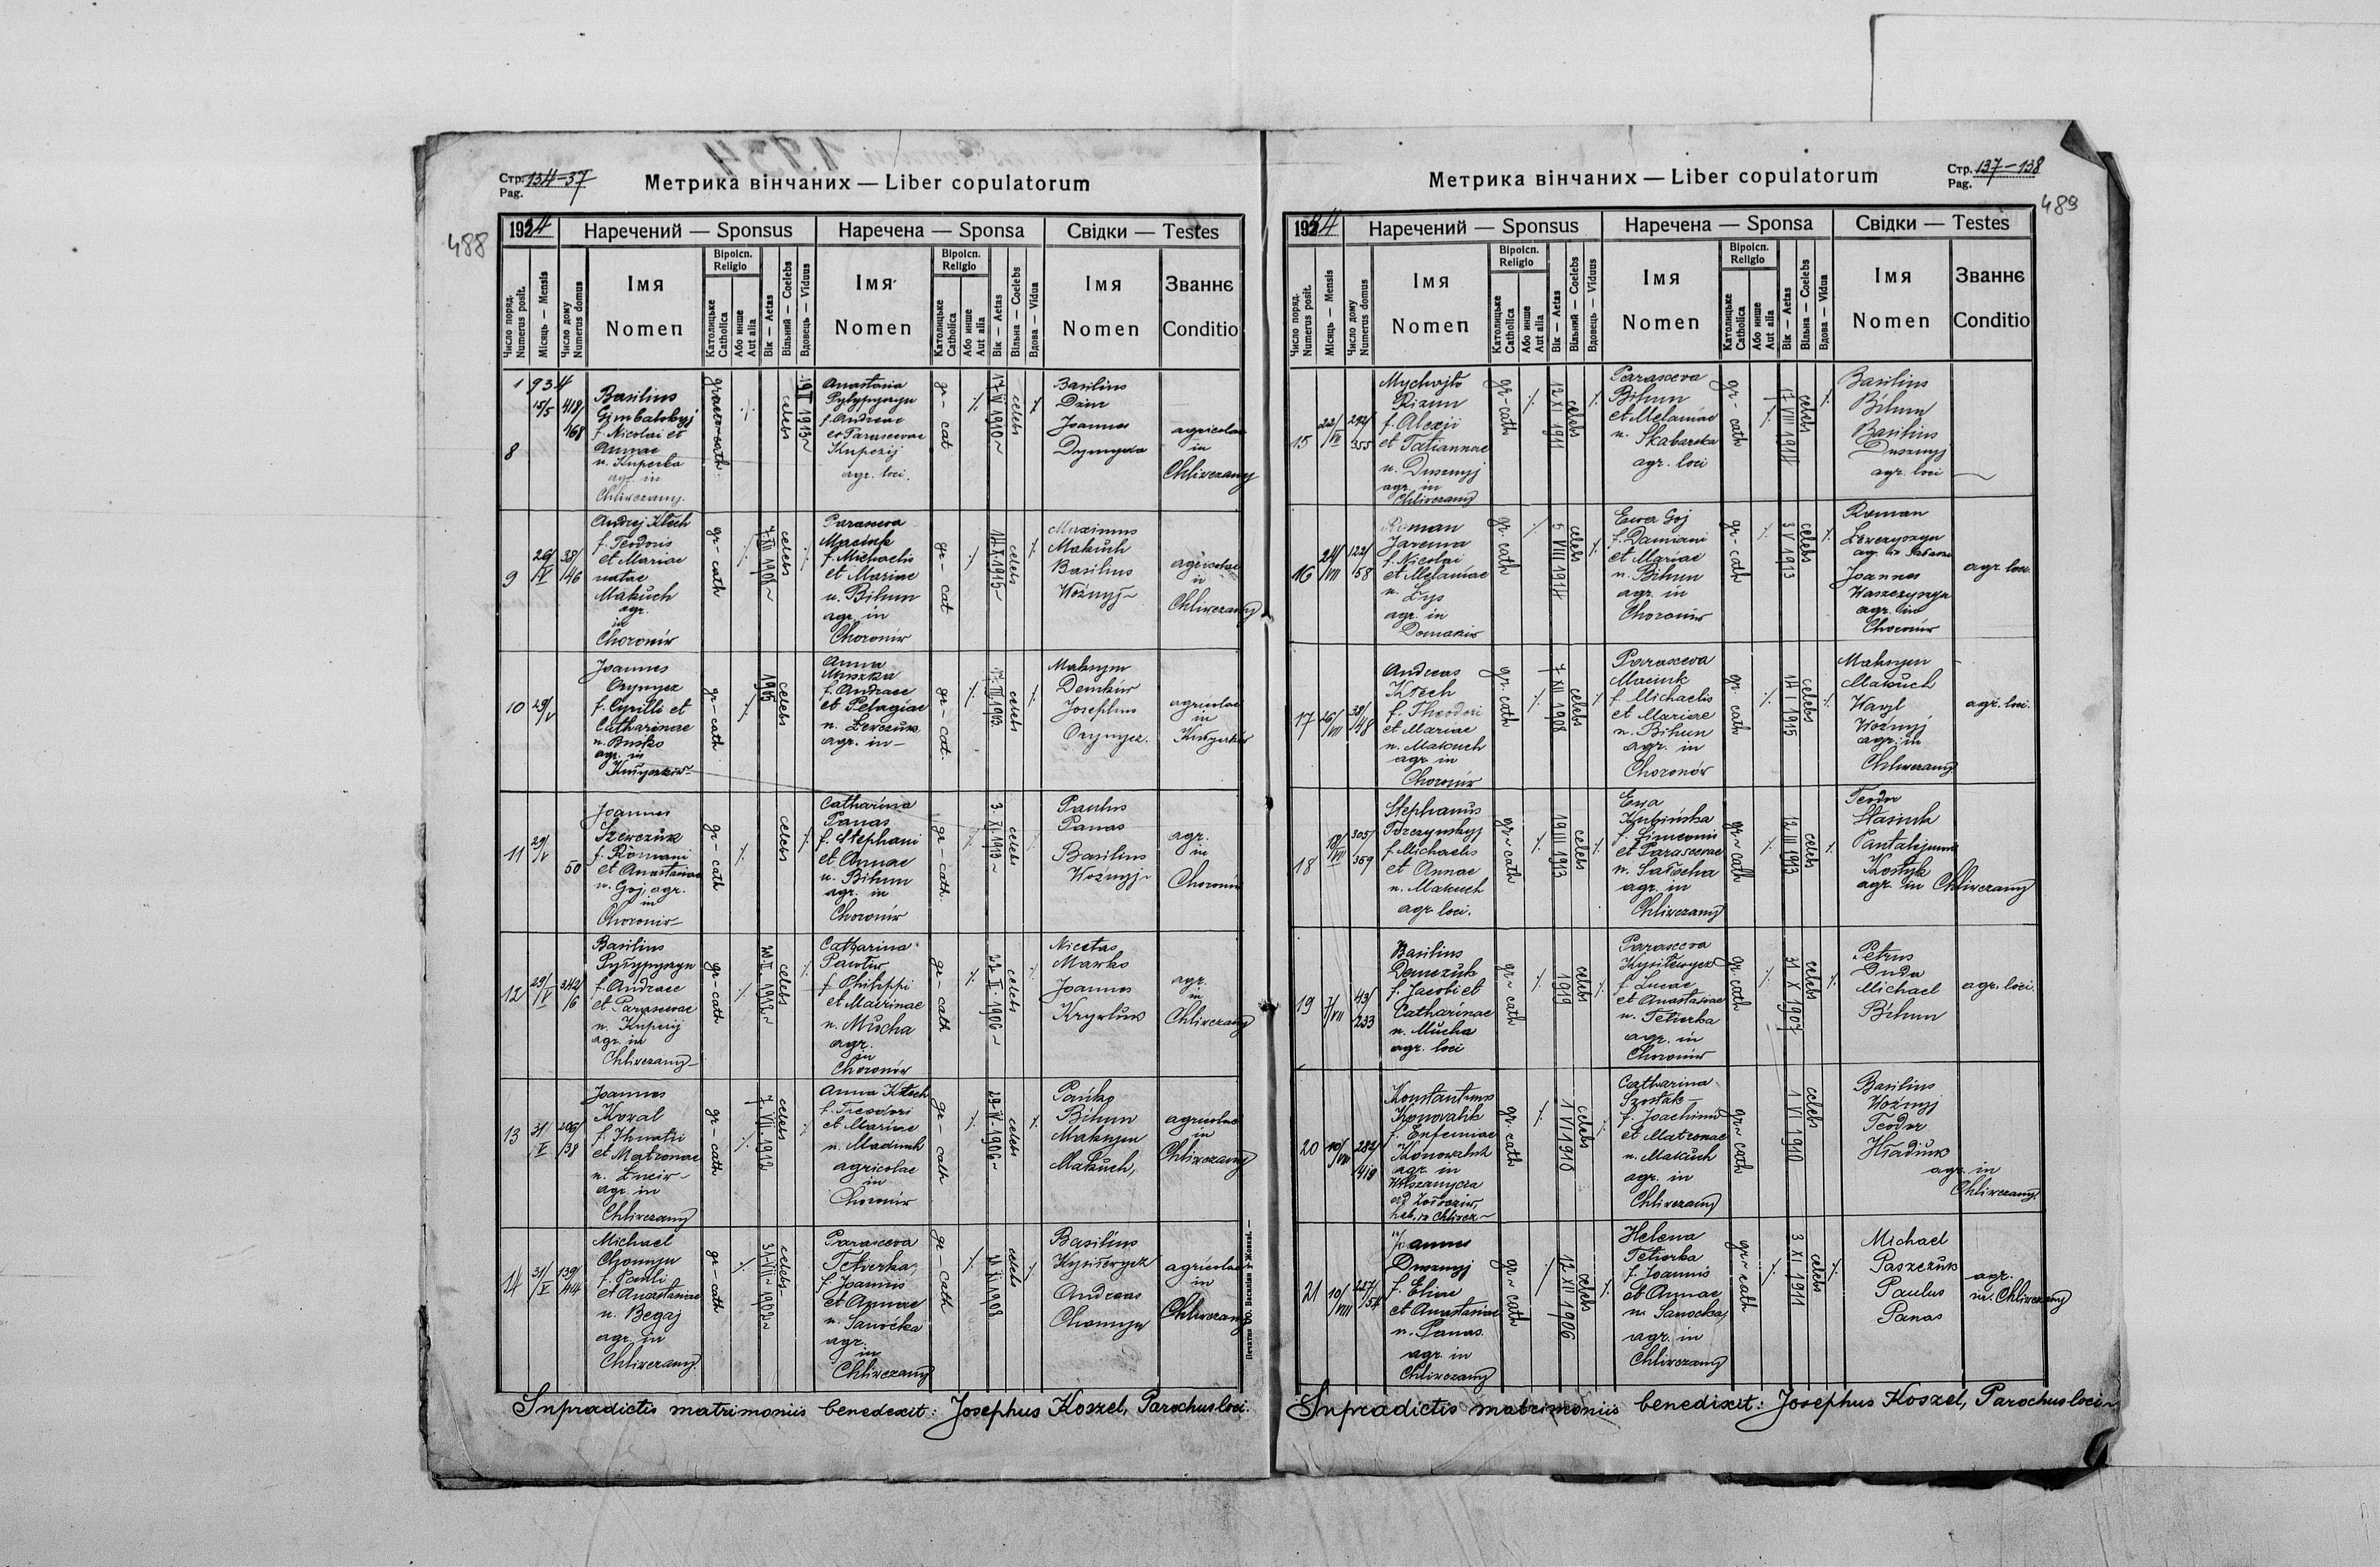 Стр. 134-37
Pag.
Метрика вінчаних — Liber copulatorum
488
1934
Наречений — Sponsus
Наречена — Sponsa
Свідки — Testes
Число поряд.
Numerus posit.
Місяць — Mensis
Число дому
Numerus domus
Імя
Nomen
Віроісп.
Religio
Католицьке
Catholica
Або инше
Aut alia
Вік — Aetas
Вільний — Coelebs
Вдовець — Viduus
Імя
Nomen
Віроісп.
Religio
Католицьке
Catholica
Або инше
Aut alia
Вік — Aetas
Вільна — Coelebs
Вдова — Vidua
Імя
Nomen
Званнє
Conditio
1934
8
15/5
418/
168
Basilius
f. Nicolai et
Annae
n. Kuperka
agr. in
Chliwczany.
graeco-cath.
celebs
Anastasia
Pyłypyszyn
f. Andreae
et Parascevae
Kuperij
agr. loci.
gr-cat
17 IV 1910
celebs
Basilius
Joannes
agricolae
in
Chliwczany
9
26/V
38/
146
Andrej Klech
f. Teodoris
et Mariae
natae
Makuch
agr.
in
Choroniw
gr-cath
7 XII 1908
celebs
Parasceva
Maciuk
f. Michaelis
et Mariae
n. Bihun
agr. in
Choroniw
gr-cat
14.X.1915
celebs
Maximus
Makuch
Basilius
Woźnyj
agricolae
in
Chliwczany
10
29/V
Joannes
Orynycz
f. Cyrilli et
Catharinae
n. Busko
agr. in
gr-cath
1905
celebs
Anna
f. Andreae
et Pelagiae
n. Szewczuk
agr. in
gr-cat.
celebs
Maksym
Demkiw
Josephus
Orynycz.
agricolae
in
11
29/V
50
Joannes
Szewczuk
f. Romani
et Anastasiae
n. Goj, agr.
in
Choroniw
gr-cath
celebs
Catharina
Panas
f. Stephani
et Annae
n. Bihun
agr. in
Choroniw
gr-cath.
3 XI 1913
celebs
Paulus
Panas
Basilius
Woźnyj
agr.
in
Choroniw
12
29/V
342/
6
Basilius
Pyłypyszyn
f. Andreae
et Parascevae
n. Kuperij
agr. in
Chliwczany
gr-cath
20.II.1912
celebs
Catharina
Pawliw
f. Philippi
et Macrinae
n. Mucha
agr.
in
Choroniw
gr-cath
22 II 1906
celebs
Nicetas
Marko
Joannes
agr.
in
Chliwczany
13
31/V
206/
38
Joannes
Kowal
f. Ihnatii
et Matronae
n. Luciw
agr. in
Chliwczany
gr-cath
7 VII 1912
celebs
Anna Klech
f. Treodori
et Mariae
agricolae
in
Choroniw
gr-cath
29 IV 1906
celebs
Pańko
Bihun
Maksym
Makuch,
agricolae
in
Chliwczany
14
31/V
139/
44
Michael
Chomyn
f. Pauli
et Anastasiae
n. Begaj
agr. in
Chliwczany.
gr-cath
31-VII-1902
celebs
Parasceva
Tetierka,
f. Joannis
et Annae
n. Sanocka
agr.
in
Chliwczany
gr-cath
celebs
Basilius
Kysilewycz
Andreas
Chomyn
agricolae
in
Chliwczany
Supradictis matrimoniis benedexit: Josephus Koszel, Parochus loci.
Печатня ОО. Василіян у Жовкві. —
Метрика вінчаних — Liber copulatorum
Стр. 137-138
Pag.
489
1934
Наречений — Sponsus
Наречена — Sponsa
Свідки — Testes
Число поряд.
Numerus posit.
Місяць — Mensis
Число дому
Numerus domus
Імя
Nomen
Віроісп.
Religio
Католицьке
Catholica
Або инше
Aut alia
Вік — Aetas
Вільний — Coelebs
Вдовець — Viduus
Імя
Nomen
Віроісп.
Religio
Католицьке
Catholica
Або инше
Aut alia
Вік — Aetas
Вільна — Coelebs
Вдова — Vidua
Імя
Nomen
Званнє
Conditio
15
292/
355
Mychajło
f. Alexii
et Tatiannae
n. Dusznyj
agr. in
Chliwczany
gr-cath
12 XI 1911
celebs
Parasceva
Bihun
et Melaniae
n. Skabarska
agr. loci
gr-cath
17 VIII 1914
celebs
Basilius
Bihun
Basilius
Dusznyj
agr. loci
16
24/VII
122/
58
Roman
Jarema
f. Nicolai
et Melaniae
n. Lys
agr. in
Domasziw
gr. cath
5 VIII 1914
celebs
Ewa Goj
f. Damiani
et Mariae
n. Bihun
agr. in
Choroniw
gr-cath
3 V 1913
celebs
Roman
Joannes
Waszczyszyn
agr. in
Choroniw
agr. loci.
17
26/VII
38/
48
Andreas
Klech
f. Theodori
et Mariae
n. Makuch
agr. in
Choroniw
gr. cath
7 XII 1908
celebs
Parasceva
Maciuk
f. Michaelis
et Mariae
n. Bihun
agr. in
Choroniw
gr. cath
14 I 1915
celebs
Maksym
Makuch
Wasyl
Woźnyj
agr. in
Chliwczany
agr. loci.
18
305/
369
Stephanus
f. Michaelis
et Annae
n. Makuch
agr. loci.
gr-cath
19 III 1913
celebs
Ewa
Kubińska
f. Simeonis
et Parascevae
agr. in
Chliwczany
gr-cath
12 III 1913
celebs
Teodor
Kostyk
agr. in Chliwczany
19
7/VII
43/
233
Basilius
Demczuk
f. Jacobi et
Catharinae
n. Mucha
agr. loci
gr-cath
1919
celebs
Parasceva
Kysilewycz
f. Lucae
et Anastasiae
n. Tetierka
agr. in
Choroniw
gr. cath
31 X 1907
celebs
Petrus
Duda
Michael
Bihun
agr. loci.
20
10/VIII
282/
419
Konstantinus
Konovalik
f. Eufemiae
agr. in
hab. in Chliwcz
gr. cath
1 VI 1910
celebs
Catharina
Szostak
f. Joachimi
et Matronae
n. Makuch
agr. in
Chliwczany
gr-cath
1 VI 1910
celebs
Basilius
Woźnyj
Teodor
Hładiuk
agr. in
Chliwczany.
21
10/VIII
227/
54
Joannes
Dusznyj
f. Eliae
et Anastasiae
n. Panas
agr. in
Chliwczany
gr-cath
12 XII 1906
celebs
Helena
Tetierka
f. Joannis
et Annae
n. Sanocka
agr. in
Chliwczany
gr-cath
3 XI 1911
celebs
Michael
Paszczuk
Paulus
Panas
agr.
in. Chliwczany
Supradictis matrimoniis benedixit: Josephus Koszel, Parochus loci